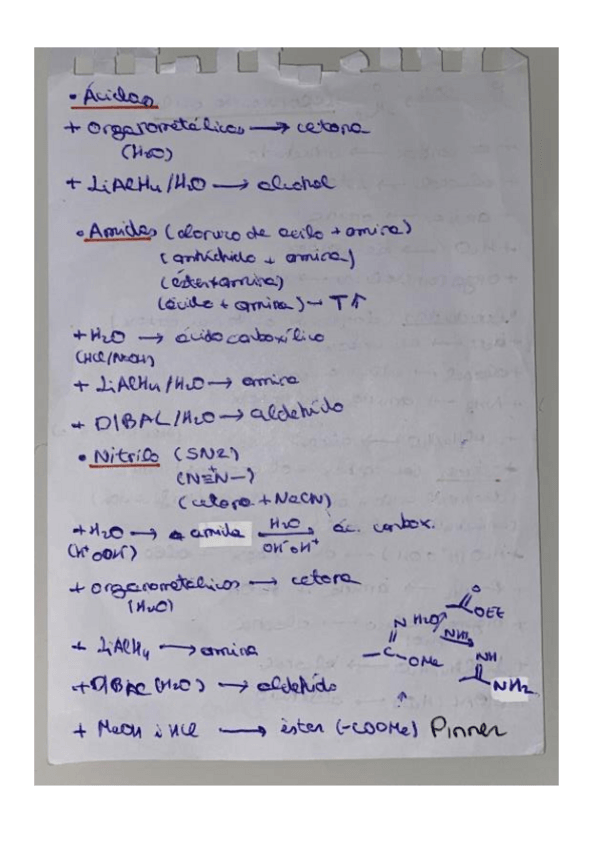 • Ácidos
+ Organometálicos → cetona
(H₂O)
+ LiAlH4 / H2O → alcohol
• Amidas (cloruro de acilo + amina)
(anhídrido + amina)
(éster + amina)
(ácido + amina) → T↑
+ H2O → ácido carboxílico
(HCl/NaOH)
+ LiAlH4 / H2O → amina
+ DIBAL / H2O → aldehído
• Nitrilo (SN2)
(N≡N–)
+
(cetona + NaCN)
+ H2O → amida H2O OH⁻ o H⁺ → ác. carbox.
(H⁺ o OH⁻)
+ organometálicos → cetona
(H2O)
+ LiAlH4 → amina
+ DIBAL (H2O) → aldehído
+ MeOH i HCl → èster (-COOMe) Pinner
O
OEt
N H2O
NH3
– C – OMe
NH
NH2